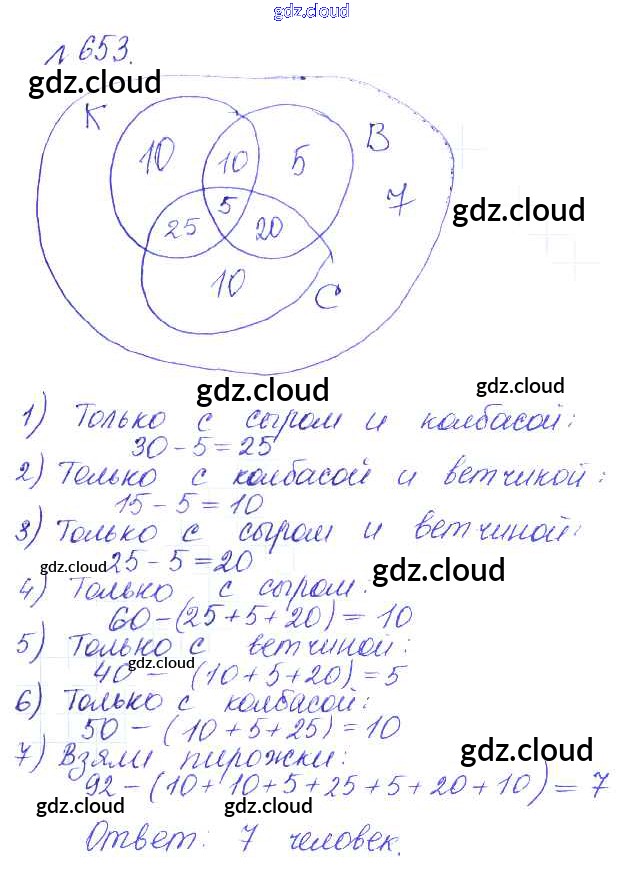 gdz.cloud
№ 653.
gdz.cloud
К
10
10
5
В
7
5
gdz.cloud
25
20
10
С
gdz.cloud
gdz.cloud
1) Только с сыром и колбасой:
30 - 5 = 25
2) Только с колбасой и ветчиной:
15 - 5 = 10
3) Только с сыром и ветчиной:
25 - 5 = 20
gdz.cloud
gdz.cloud
4) Только с сыром:
60 - (25 + 5 + 20) = 10
5) Только с ветчиной:
gdz.cloud
40 - (10 + 5 + 20) = 5
6) Только с колбасой:
50 - (10 + 5 + 25) = 10
7) Взяли пирожки:
gdz.cloud
92 - (10 + 10 + 5 + 25 + 5 + 20 + 10) = 7
gdz.cloud gdz.cloud
Ответ: 7 человек.